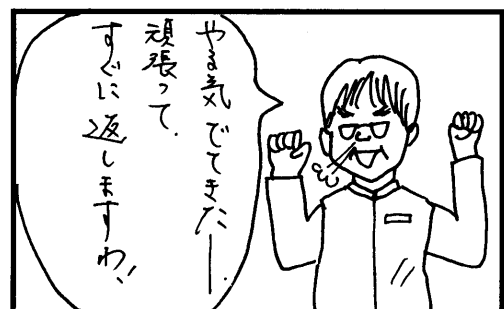 やる気でてきたー.
頑張って.
すぐに返しますわ!